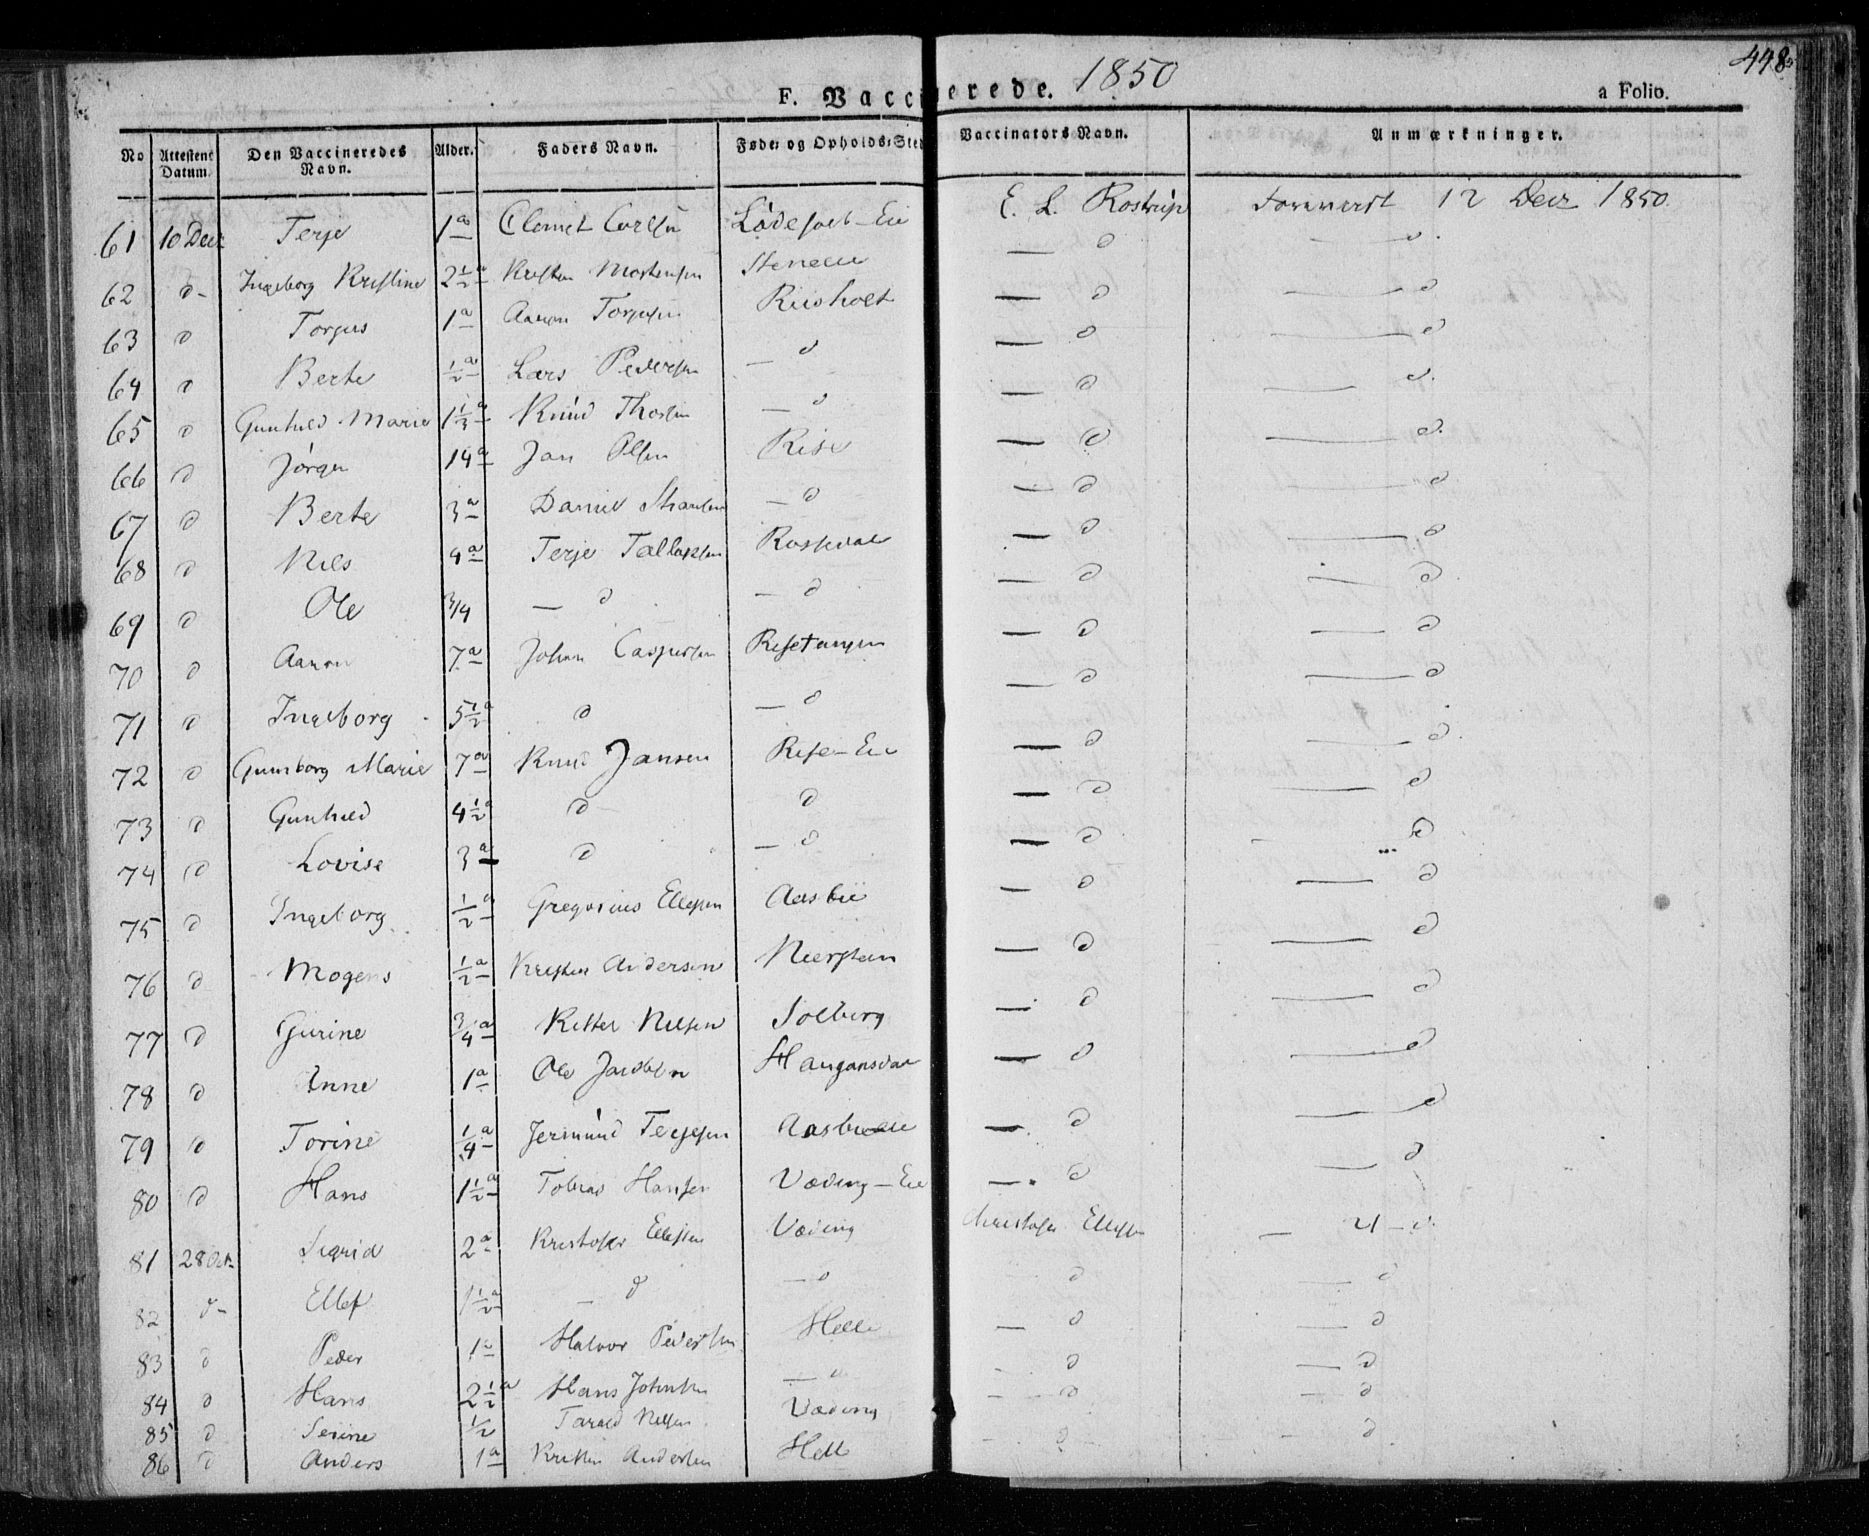 448
F. Vaccinerede. 1850
a Folio.
No Attestens Datum. Den Vaccineredes Navn. Alder. Faders Navn. Føde- og Opholds-Sted Vaccinators Navn. Anmærkninger.
61 10 Decr Terje 1 a Clemet Carlsen Eie E. L. Rostrup Foreviist 12 Decr 1850
62 d- Ingeborg Kristine 2½ a Kristen Mortensen — d — d
63 d Torjus 1 a Aanon Torjusen Riisholt — d — d
64 d Berte ½ a Lars Pedersen — d — d — d
65 d Gunhild Marie 1⅓ a Knud — d — d — d
66 d Jørgen 14 a Jan Olsen Rise — d — d
67 d Berte 3 a Daniel — d — d — d
68 d Nils 4 a Terje Tallaksen — d — d
69 d Ole 3/4 — d — d — d — d
70 d Aanon 7 a Johan Caspersen Risetangen — d — d
71 d Ingeborg 5½ a d — d — d — d
72 d Gunborg Marie 7 a Knud Jansen Rise-Eie — d — d
73 d Gunhild 4½ a d d — d — d
74 d Lovise 3 a d — d — d — d
75 d Ingeborg ½ a Gregorius Ellefsen Aasbie — d — d
76 d Mogens ½ a Kristen Andersen — d — d
77 d Gurine 3/4 a Kittel Nilsen Solberg — d — d
78 d Anne 1 a Ole Jacobsen — d — d
79 d Torine 1/4 a Jermund Terjesen — d — d
80 d Hans 1½ a Tobias Hansen Væding-Eie — d — d
81 28 Oct Sigrid 2 a Kristofer Ellefsen Væding Christofer Ellefsen — 21 - d
82 d- Ellef 1½ a — d — d d — d
83 d Peder 1 a Halvor Pedersen Helle — d — d
84 d Hans 2½ a Hans Johnsen — d - d — d
85 d Serine ½ Tarald Nilsen Væding - d - d
86 d Anders 1 a Kristen Andersen Helle - d - d